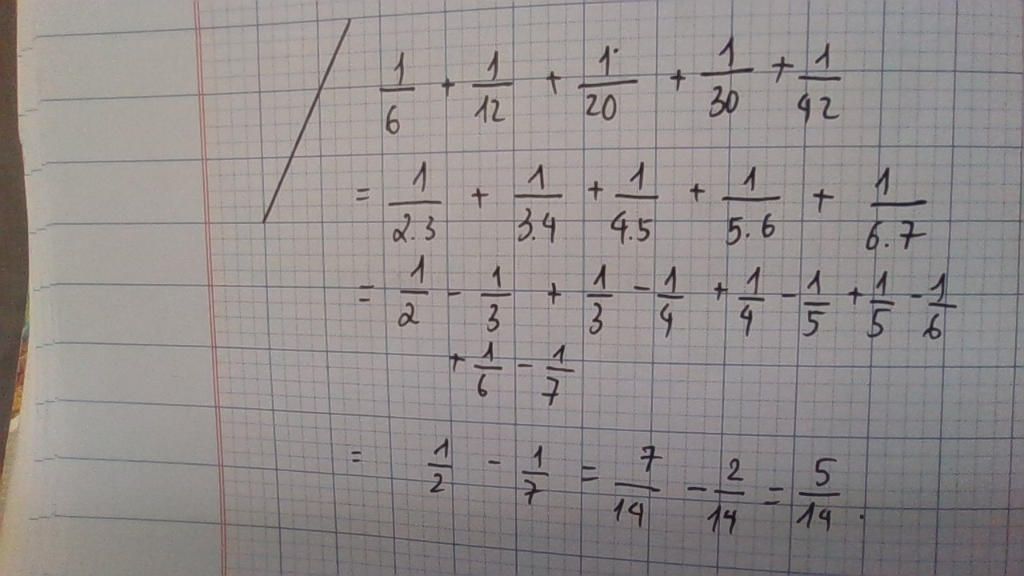 1/6 + 1/12 + 1/20 + 1/30 + 1/42
= 1/2.3 + 1/3.4 + 1/4.5 + 1/5.6 + 1/6.7
= 1/2 - 1/3 + 1/3 - 1/4 + 1/4 - 1/5 + 1/5 - 1/6
+ 1/6 - 1/7
= 1/2 - 1/7 = 7/14 - 2/14 = 5/14.